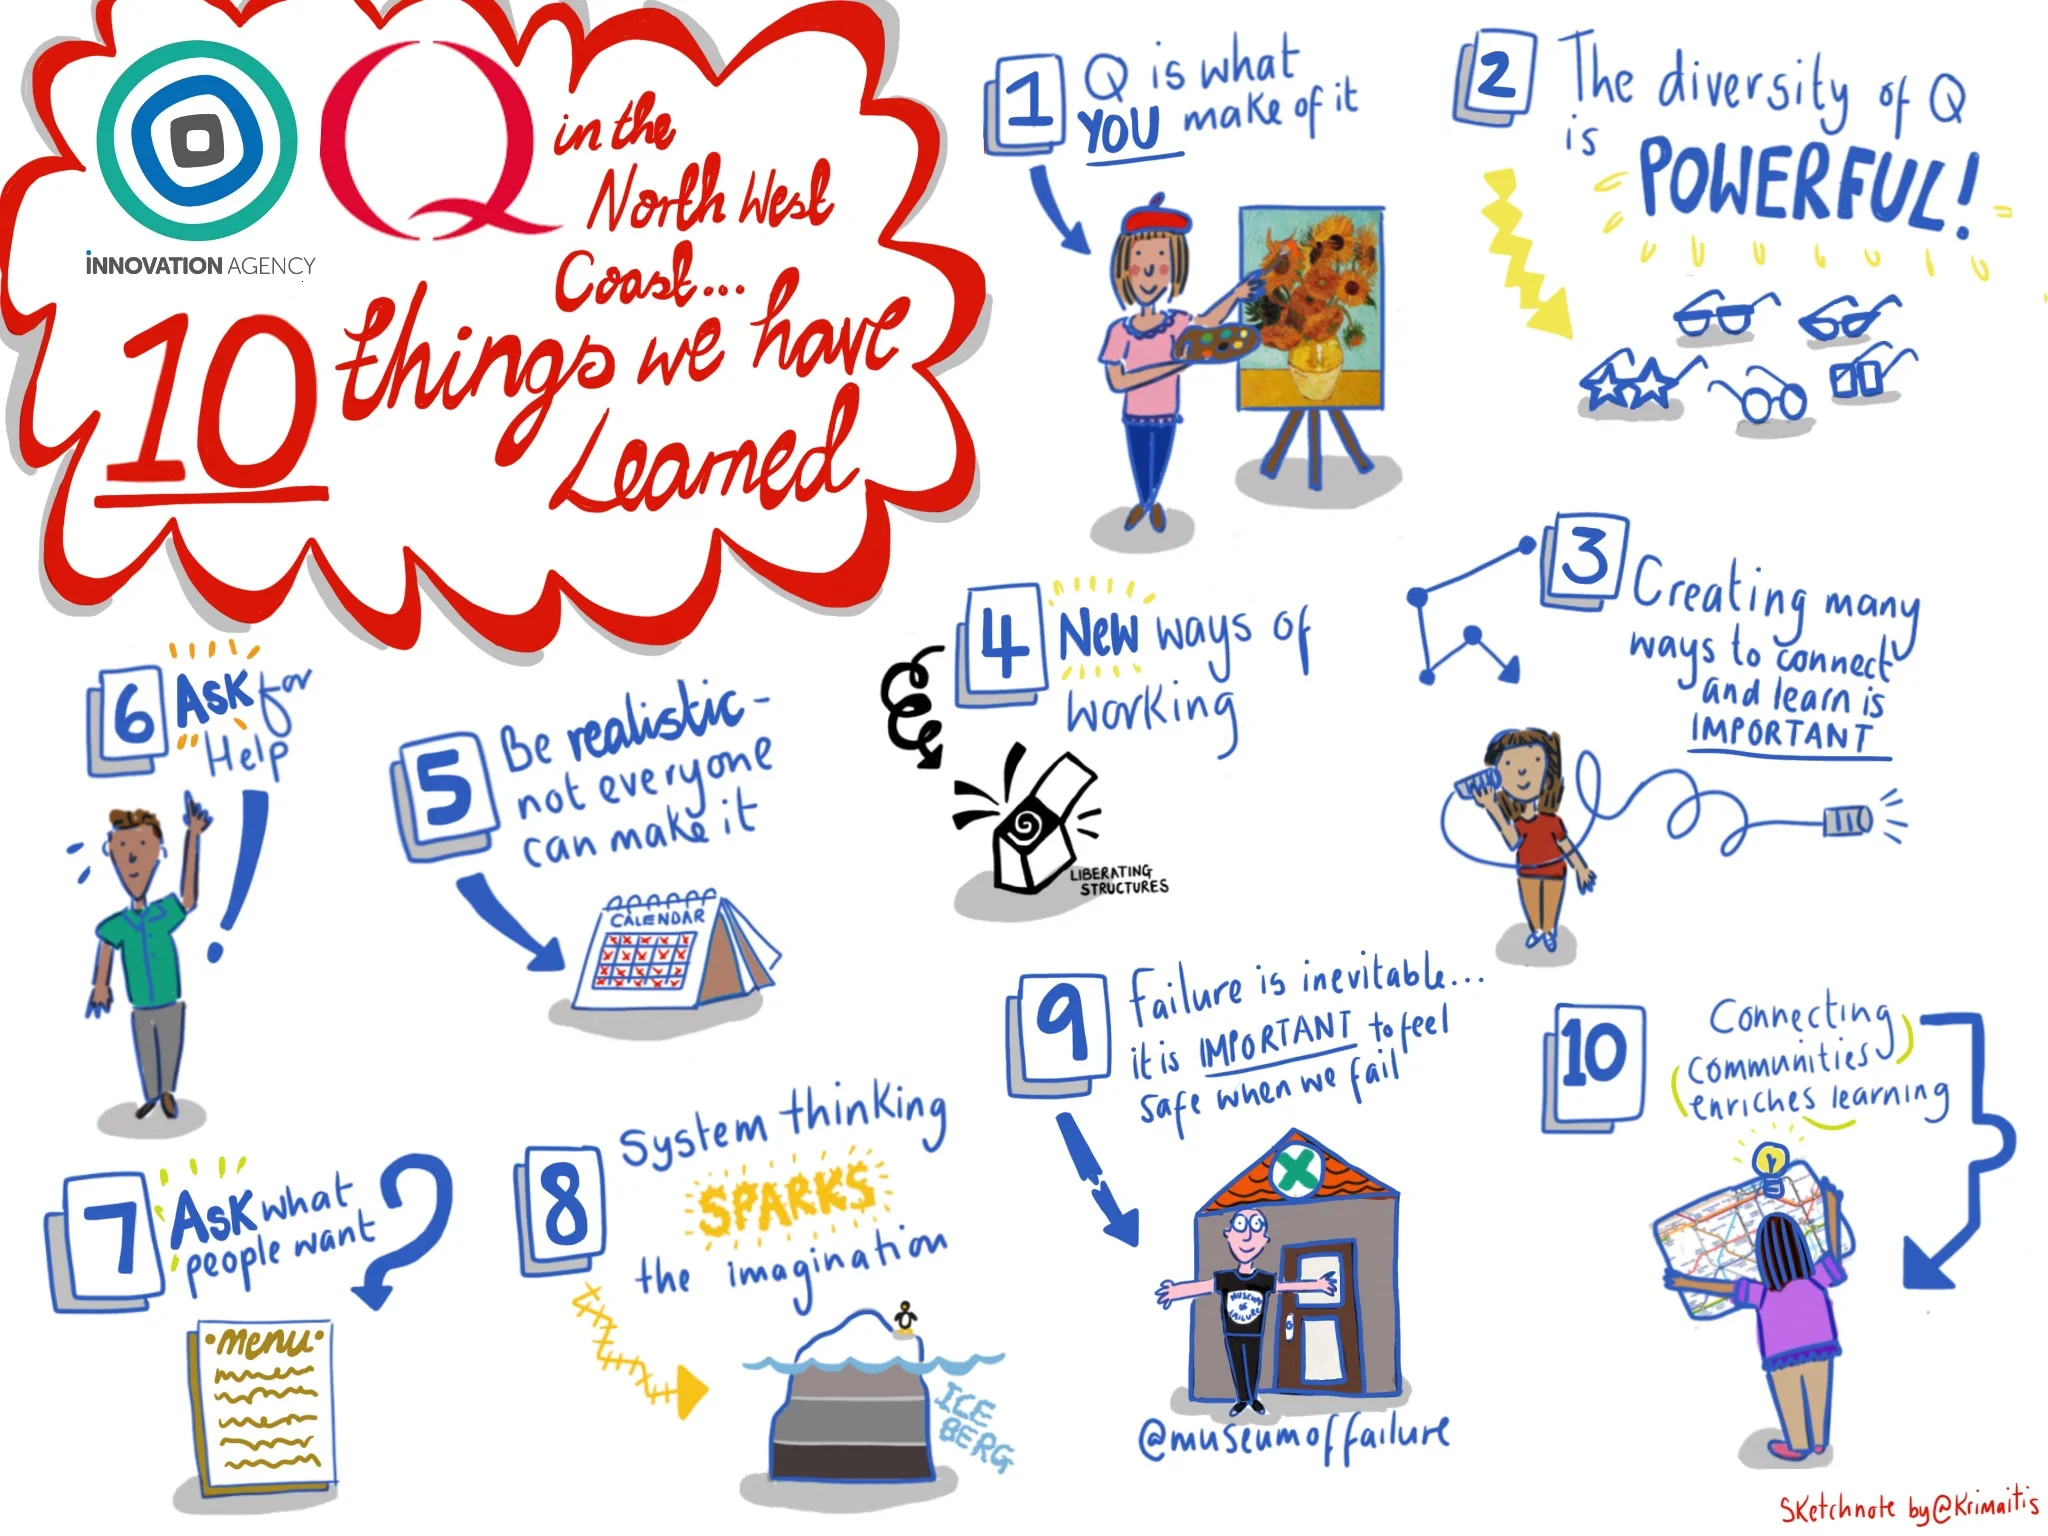 INNOVATION AGENCY
Q
in the
North West
Coast...
10 things we have
Learned
1 Q is what
YOU make of it
2 The diversity of Q
is
POWERFUL!
3 Creating many
ways to connect
and learn is
IMPORTANT
4 New ways of
working
LIBERATING
STRUCTURES
5 Be realistic -
not everyone
can make it
CALENDAR
6 Ask for
Help
7 Ask what
people want
MENU
8 System thinking
SPARKS
the imagination
ICE
BERG
9 Failure is inevitable...
it is IMPORTANT to feel
safe when we fail
MUSEUM
OF
FAILURE
@museumoffailure
10 Connecting
communities
enriches learning
Sketchnote by @Krimaitis